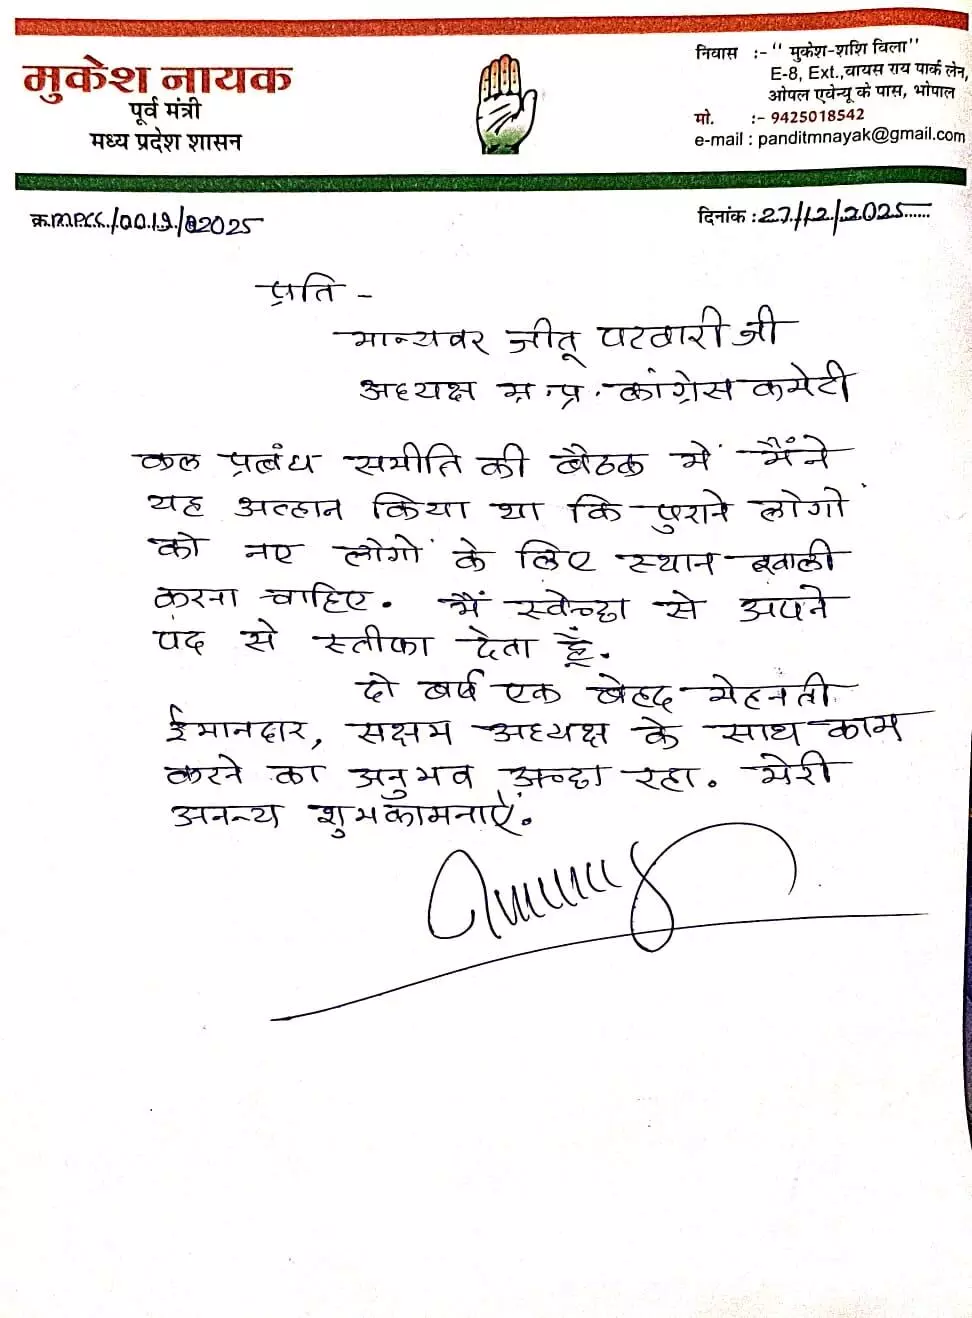 मुकेश नायक
पूर्व मंत्री
मध्य प्रदेश शासन
निवास :- " मुकेश-शशि विला"
E-8, Ext.,वायस राय पार्क लेन,
ओपल एवेन्यू के पास, भोपाल
मो. :- 9425018542
e-mail : panditmnayak@gmail.com
क्र.M.P.C.C./00.19/2025
दिनांक : 27/12/2025
प्रति -
मान्यवर जीतू पटवारी जी
अध्यक्ष म.प्र. कांग्रेस कमेटी
कल प्रबंध समीति की बैठक में मैंने
यह अव्हान किया था कि पुराने लोगों
को नए लोगों के लिए स्थान खाली
करना चाहिए. मैं स्वेच्छा से अपने
पद से स्तीफा देता हूँ.
दो बर्ष एक बेहद मेहनती
ईमानदार, सक्षम अध्यक्ष के साथ काम
करने का अनुभव अच्छा रहा. मेरी
अनन्य शुभकामनाऐं.